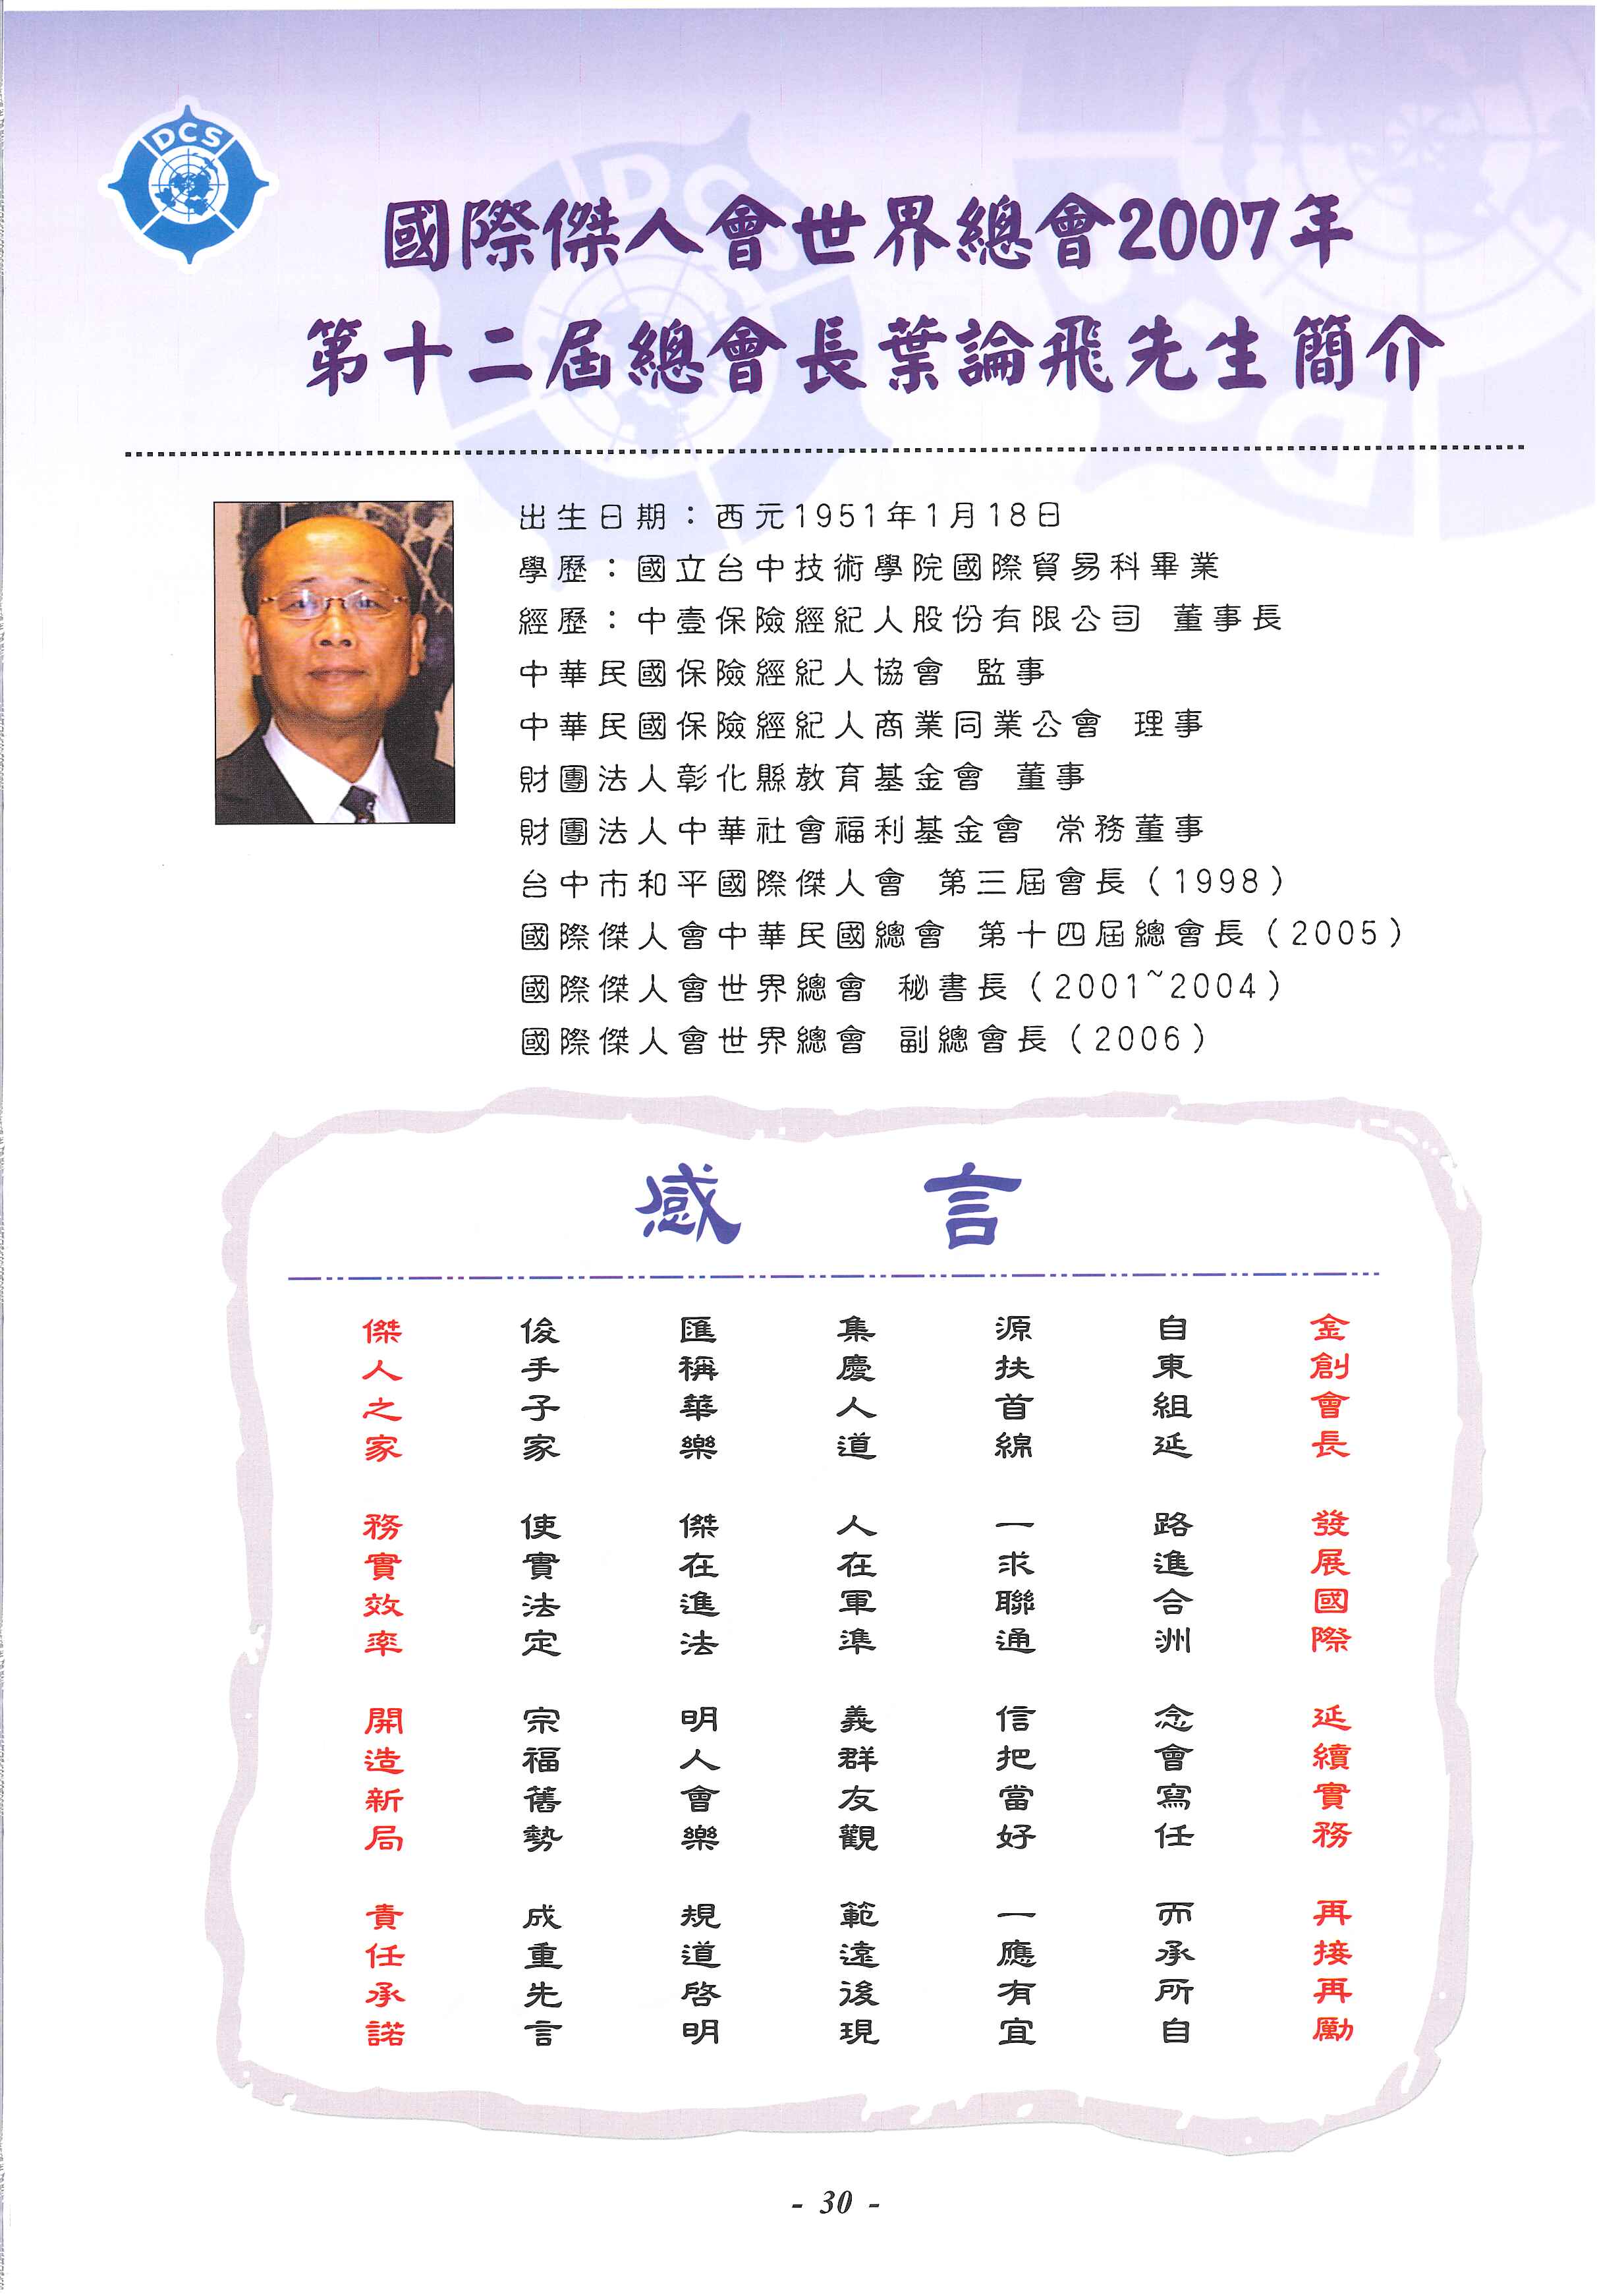 DCS
國際傑人會世界總會2007年
第十二屆總會長葉論飛先生簡介
出生日期：西元1951年1月18日
學歷：國立台中技術學院國際貿易科畢業
經歷：中壹保險經紀人股份有限公司 董事長
中華民國保險經紀人協會 監事
中華民國保險經紀人商業同業公會 理事
財團法人彰化縣教育基金會 董事
財團法人中華社會福利基金會 常務董事
台中市和平國際傑人會 第三屆會長（1998）
國際傑人會中華民國總會 第十四屆總會長（2005）
國際傑人會世界總會 秘書長（2001~2004）
國際傑人會世界總會 副總會長（2006）
感 言
傑俊匯集源自金
人手稱慶扶東創
之子華人首組會
家家樂道綿延長
務使傑人一路發
實實在在求進展
效法進軍聯合國
率定法準通洲際
開宗明義信念延
造福人群把會續
新舊會友當寫實
局勢樂觀好任務
責成規範一而再
任重道遠應承接
承先啓後有所再
諾言明現宜自勵
- 30 -